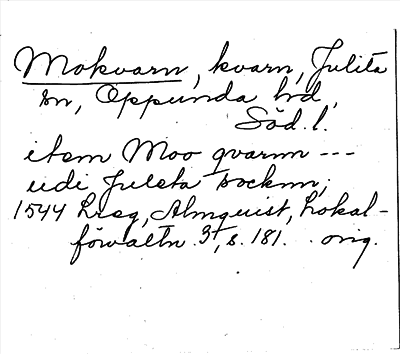 Mokvarn, kvarn, Julita
sn, Oppunda hd,
Söd. l.
item Moo qvarnn ---
udi Juleta socknn,
1544 Lreg, Almquist, Lokal-
förvaltn. 3, s. 181. orig.